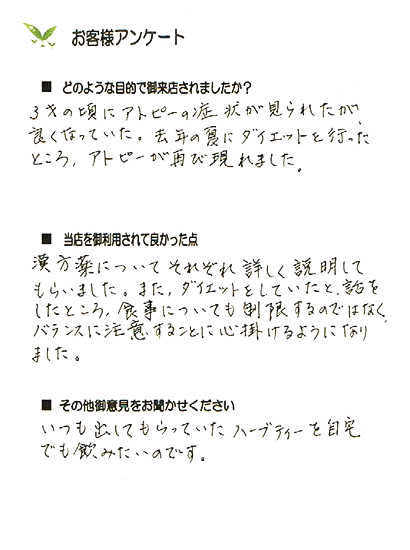 お客様アンケート
■ どのような目的で御来店されましたか?
3才の頃にアトピーの症状が見られたが、
良くなっていた。去年の夏にダイエットを行った
ところ、アトピーが再び現れました。
■ 当店を御利用されて良かった点
漢方薬についてそれぞれ詳しく説明して
もらいました。また、ダイエットをしていたと、話を
したところ、食事についても制限するのではなく、
バランスに注意することに心掛けるようになり
ました。
■ その他御意見をお聞かせください
いつも出してもらっていたハーブティーを自宅
でも飲みたいのです。